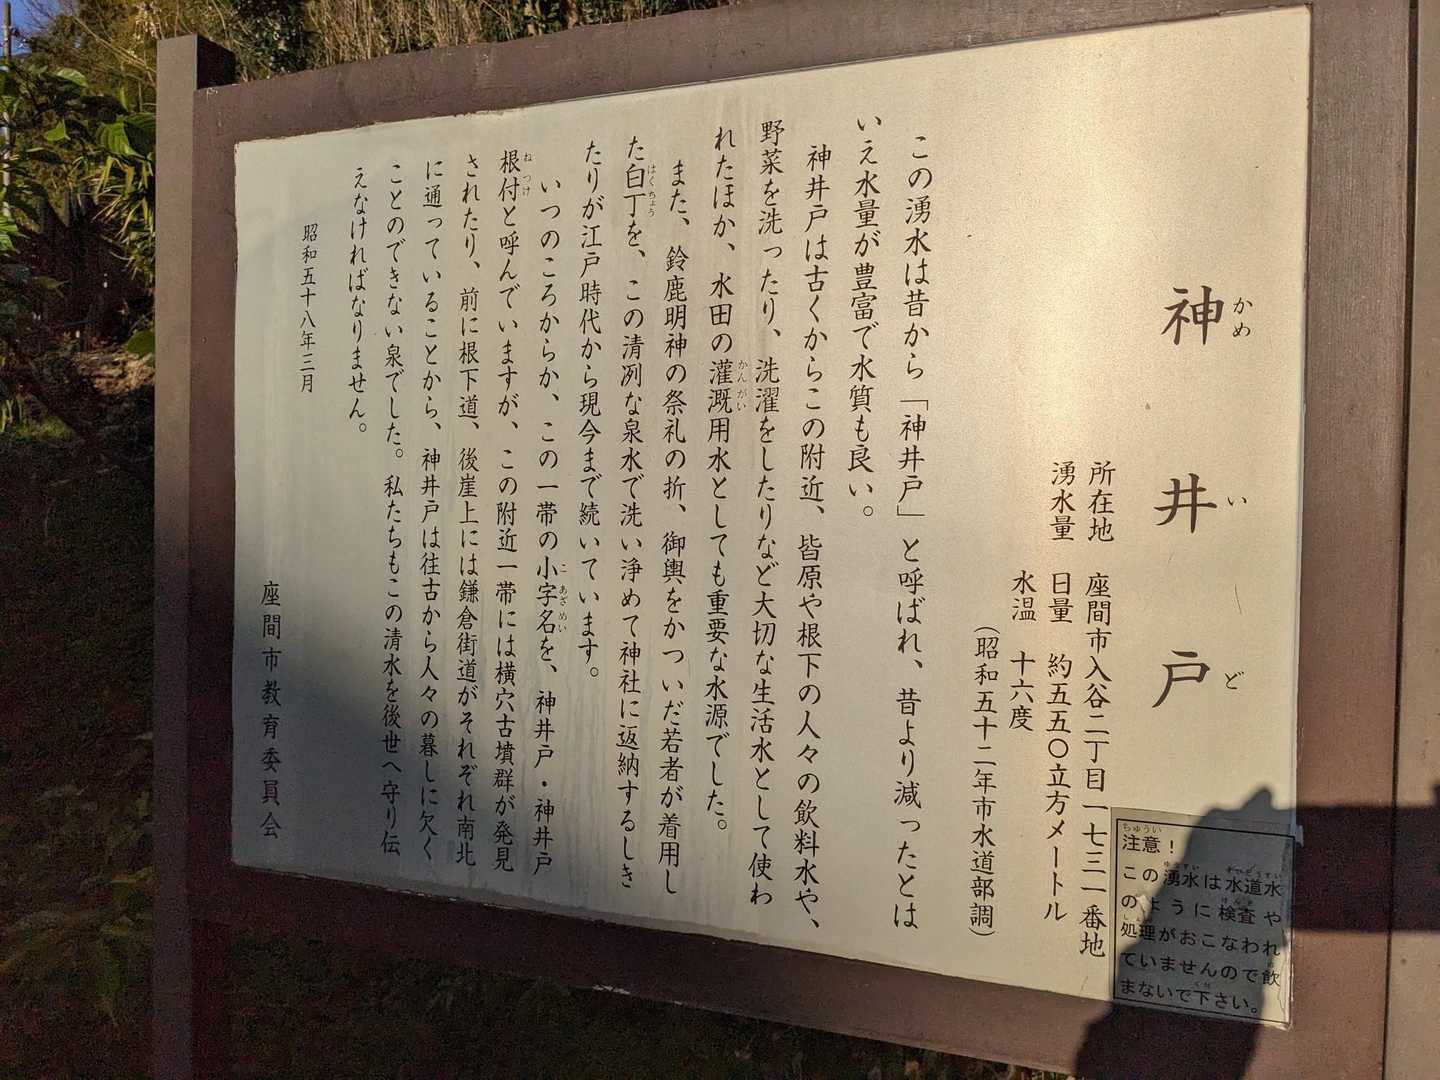 神井戸
かめいど
所在地 座間市入谷二丁目一七三一番地
湧水量 日量 約五五〇立方メートル
水温 十六度
(昭和五十二年市水道部調)
この湧水は昔から「神井戸」と呼ばれ、昔より減ったとは
いえ水量が豊富で水質も良い。
神井戸は古くからこの附近、皆原や根下の人々の飲料水や、
野菜を洗ったり、洗濯をしたりなど大切な生活水として使わ
れたほか、水田の灌漑用水としても重要な水源でした。
かんがい
また、鈴鹿明神の祭礼の折、御輿をかついだ若者が着用し
た白丁を、この清冽な泉水で洗い浄めて神社に返納するしき
はくちょう
たりが江戸時代から現今まで続いています。
いつのころからか、この一帯の小字名を、神井戸・神井戸
こあざめい
根付と呼んでいますが、この附近一帯には横穴古墳群が発見
ねつけ
されたり、前に根下道、後崖上には鎌倉街道がそれぞれ南北
に通っていることから、神井戸は往古から人々の暮しに欠く
ことのできない泉でした。私たちもこの清水を後世へ守り伝
えなければなりません。
昭和五十八年三月
座間市教育委員会
ちゅうい
注意!
ゆうすい すいどうすい
この湧水は水道水
けんさ
のように検査や
しょり
処理がおこなわれ
の
ていませんので飲
くだ
まないで下さい。